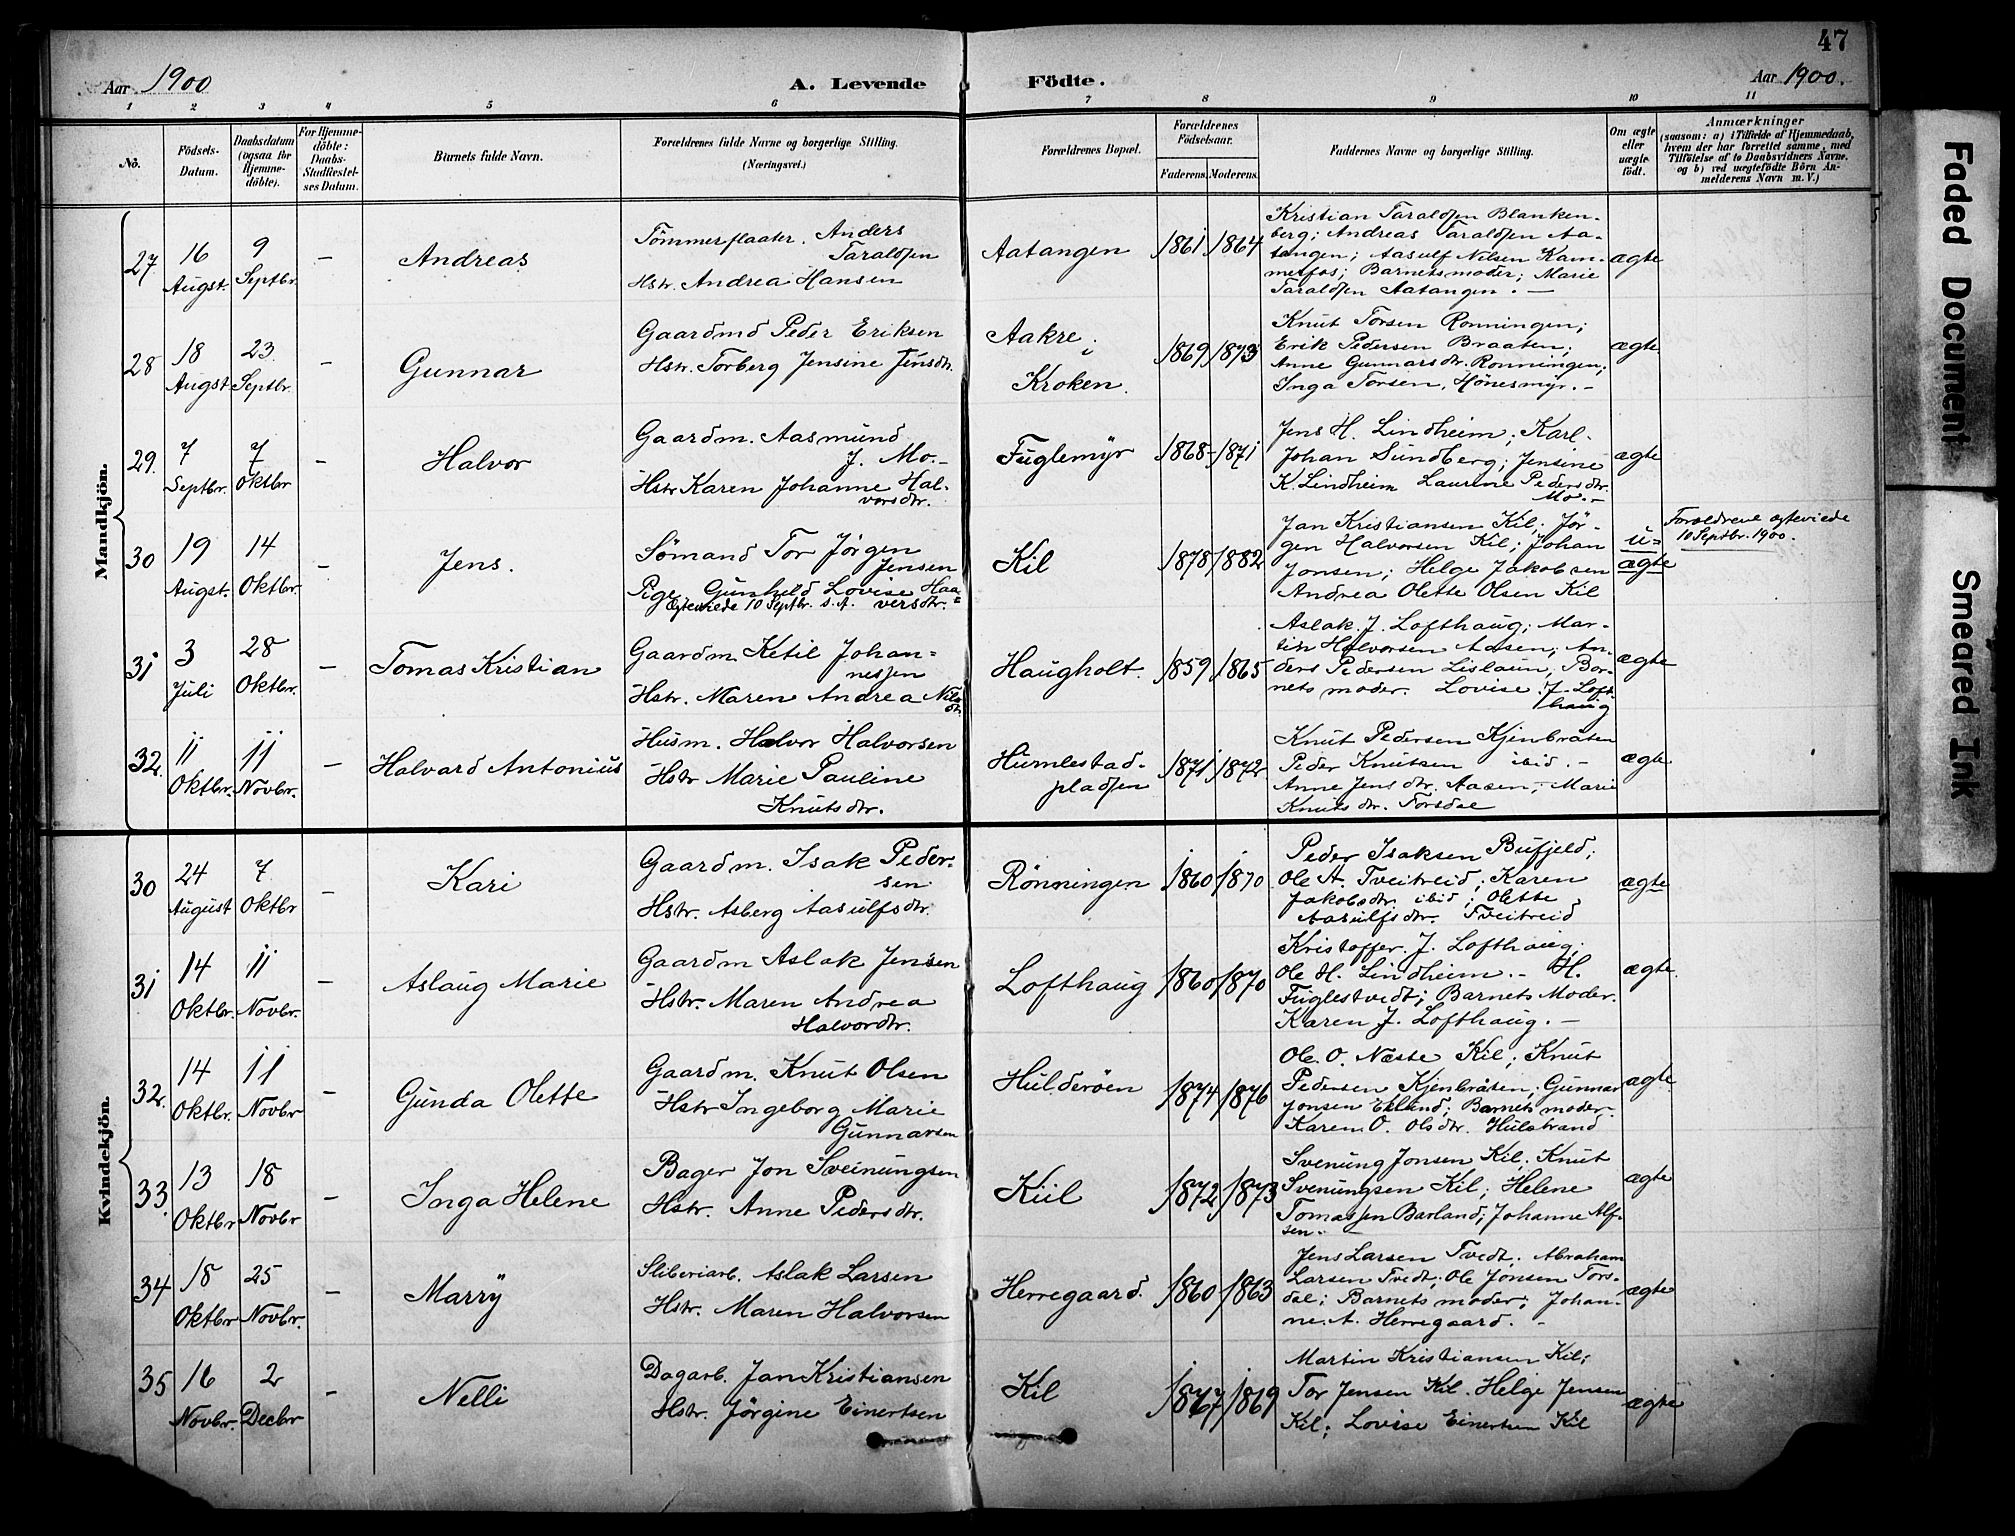 47
Aar 1900
A. Levende Födte.
Aar 1900.
1 2 3 4 5 6 7 8 9 10 11
No.
Födsels-Datum.
Daabsdatum (ogsaa for Hjemmedöbte).
For Hjemmedöbte: Daabs-Stadfæstelses Datum.
Barnets fulde Navn.
Forældrenes fulde Navne og borgerlige Stilling. (Næringsvei.)
Forældrenes Bopæl.
Forældrenes Födselsaar.
Faderens. Moderens.
Faddernes Navne og borgerlige Stilling.
Om ægte eller uægte födt.
Anmærkninger
(saasom: a) i Tilfælde af Hjemmedaab, hvem der har forrettet samme, med Tilföielse af to Daabsvidners Navne, og b) ved uægtefödte Börn Anmelderens Navn m. V.)
Mandkjön.
27
16 Augst.
9 Septbr.
–
Andreas
Tømmerflaater. Anders
Taraldsen
Hstr. Andrea Hansen
Aatangen
1861
1864
Kristian Taraldsen Blanken-
berg; Andreas Taraldsen Aa-
tangen; Aasulf Nilsen Kam-
metfos; Barnets moder; Marie
Taraldsen Aatangen. –
ægte
28
18 Augst.
23 Septbr.
–
Gunnar
Gaardmd Peder Eriksen
Hstr. Torberg Jensine Jensdtr.
Aakre i
Kroken.
1869
1873
Knut Torsen Rønningen;
Erik Pedersen Braaten;
Anne Gunnarsdtr. Rønningen;
Inga Torsen, Hønesmyr. –
ægte
29.
7 Septbr.
7 Oktbr
–
Halvor
Gaardm. Aasmund
J. Mo. –
Hstr Karen Johanne Hal-
vorsdtr.
Fuglemyr
1868
1871
Jens H. Lindheim; Karl
Johan Sundberg; Jensine
K. Lindheim Laurine Pedersdtr.
Mo. –
ægte
30
19 Augst.
14 Oktbr.
–
Jens.
Sømand Tor Jørgen
Jensen
Pige Gunhild Lovise Haa-
versdtr.
Ægteviede 10 Septbr. s. A.
Kil
1878
1882
Jan Kristiansen Kil; Jør-
gen Halvorsen Kil; Johan
Jonsen; Helge Jakobsen
Andrea Olette Olsen Kil
u-
ægte
Forældrene ægteviede
10 Septbr. 1900.
31
3 Juli
28 Oktbr.
–
Tomas Kristian
Gaardm. Ketil Johan-
nessen
Hstr. Maren Andrea Nils-
dtr.
Haugholt.
1859
1865
Aslak J. Lofthaug; Mar-
tin Halvorsen Aasen; An-
ders Pedersen Lislaun, Bar-
nets moder. Lovise J. Loft-
haug
ægte
32.
11 Oktbr.
11 Novbr.
–
Halvard Antonius
Husm. Halvor Halvorsen
Hstr Marie Pauline
Knutsdtr.
Humlestad-
pladsen
1871
1872
Knut Pedersen Kjenbråten
Peder Knutsen ibid. –
Anne Jensdtr. Aasen; Marie
Knutsdtr. Forsdal
ægte
Kvindekjön.
30
24 August
7 Oktbr
–
Kari
Gaardm. Isak Peder-
sen
Hstr. Asberg Aasulfsdtr.
Rønningen
1860
1870
Peder Isaksen Bufjeld;
Ole A. Tveitreid; Karen
Jakobsdtr ibid; Olette
Aasulfsdtr. Tveitreid
ægte
31
14 Oktbr.
11 Novbr.
–
Aslaug Marie
Gaardm Aslak Jensen
Hstr. Maren Andrea
Halvordtr.
Lofthaug
1860
1870
Kristoffer J. Lofthaug;
Ole H. Lindheim. – H.
Fuglestvedt; Barnets Moder.
Karen J. Lofthaug. –
ægte.
32.
14 Oktbr.
11 Novbr
–
Gunda Olette
Gaardm. Knut Olsen
Hstr Ingeborg Marie
Gunnarsen
Hulderøen
1874
1876
Ole O. Næste Kil; Knut
Pedersen Kjenbråten; Gunnar
Jonsen Eklund; Barnets moder.
Karen O. Olsdtr. Hulstrand
ægte.
33.
13 Oktbr
18 Novbr
–
Inga Helene
Bager Jon Sveinungsen
Hstr. Anne Pedersdtr.
Kiil
1872
1873
Svenung Jonsen Kil; Knut
Svenungsen Kil; Helene
Tomassen Barland; Johanne Alf-
sen. –
ægte
34
18 Oktbr
25 Novbr.
–
Marry
Sliberiarb. Aslak Larsen
Hstr. Maren Halvorsen
Herregaard.
1860
1863
Jens Larsen Tvedt; Abraham
Larsen Tvedt; Ole Jonsen Tors-
dal; Barnets moder; Johan-
ne. A. Herregaard. –
ægte
35
16 Novbr.
2 Decbr
–
Nelli
Dagarb. Jan Kristiansen
Hstr. Jörgine Einertsen
Kil
1867
1869
Martin Kristiansen Kil;
Tor Jensen Kil. Helge Jensen
Kil; Lovise Einertsen Kil
ægte
Faded Document
Smeared Ink